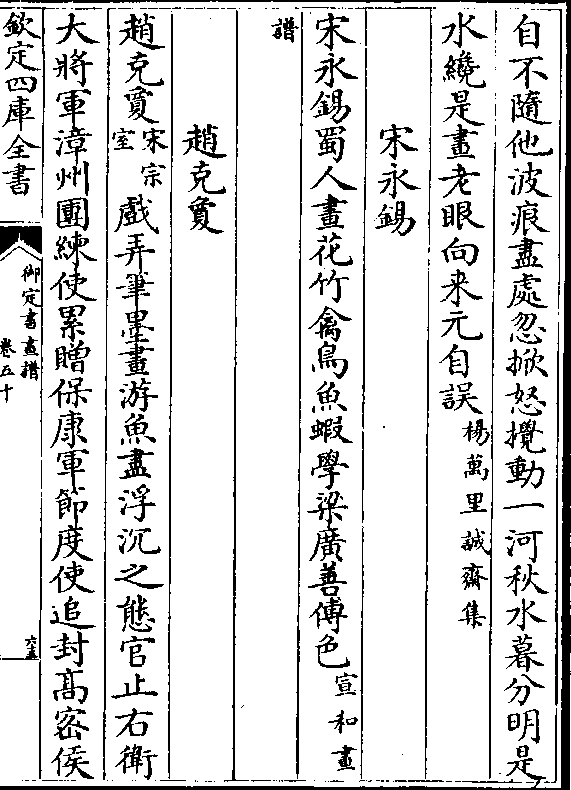 自不隨他波痕盡處忽掀怒攪動一河秋水暮分明是
水纔是畫老眼向来元自誤楊萬里誠齋集
宋永錫
宋永錫蜀人畫花竹禽鳥魚蝦學梁廣善傅色宣和畫
譜
趙克敻
趙克敻宋宗室戲弄筆墨畫游魚盡浮沉之態官止右衛
大將軍漳州團練使累贈保康軍節度使追封髙密侯
欽定四庫全書
御定書畫譜
卷五十
六五